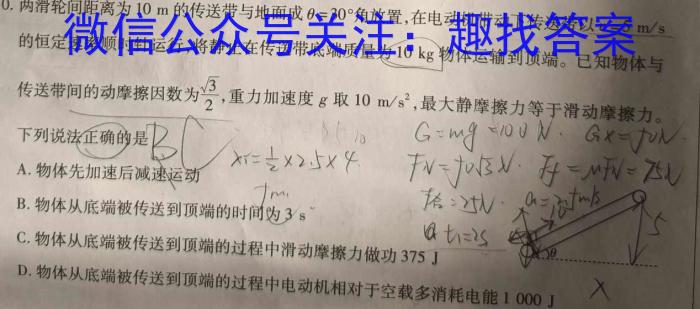 0. 两滑轮间距离为 10 m 的传送带与地面成 θ=30°角放置,在电动机带动 m/s
微信公众号关注：趣找答案
的恒定 将静止在传送带底端质量为 10 kg 物体运输到顶端。已知物体与
传送带间的动摩擦因数为√3/2,重力加速度 g 取 10 m/s²,最大静摩擦力等于滑动摩擦力。
下列说法正确的是 BC
G=mg=100N. Gx=50N.
x₁=½×2.5×4
FN=50√3N. Ff=μFN=75N
A. 物体先加速后减速运动
5m
=25N.
B. 物体从底端被传送到顶端的时间为 3 s
t₁=2s
5
θ
C. 物体从底端被传送到顶端的过程中滑动摩擦力做功 375 J
D. 物体从底端被传送到顶端的过程中电动机相对于空载多消耗电能 1 000 J
X